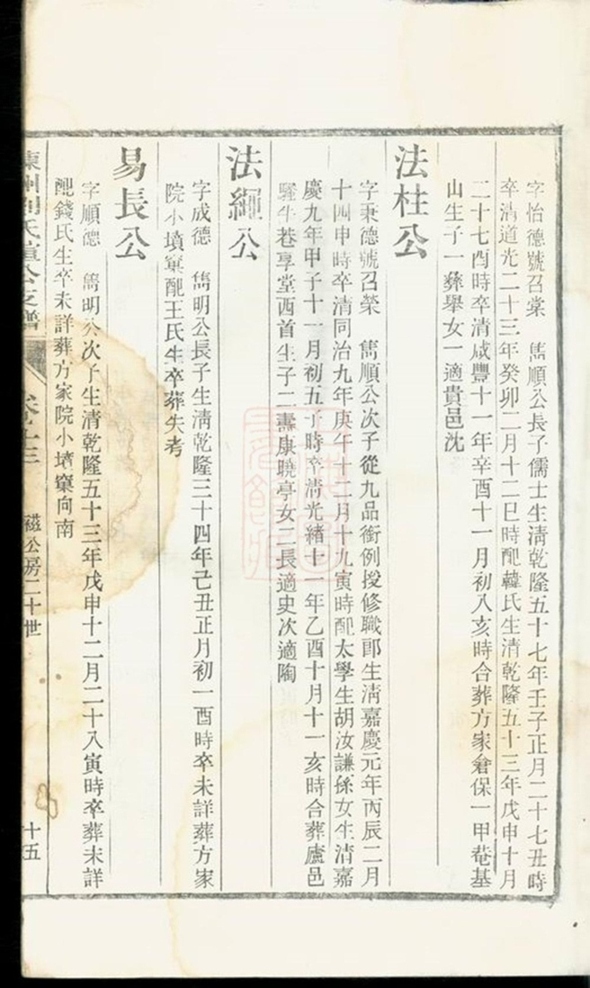 字怡德號召棠 儁順公長子儒士生清乾隆五十七年壬子正月二十七丑時
卒清道光二十三年癸卯二月十二巳時配韓氏生清乾隆五十三年戊申十月
二十七酉時卒清咸豐十一年辛酉十一月初八亥時合葬方家倉保一甲菴基
山生子一彝舉女一適貴邑沈
法柱公
字秉德號召榮 儁順公次子從九品銜例授修職郎生清嘉慶元年丙辰二月
十四申時卒清同治九年庚午十二月十九寅時配太學生胡汝謙孫女生清嘉
慶九年甲子十一月初五子時卒清光緒十一年乙酉十月十一亥時合葬廬邑
牛巷享堂西首生子二壽康曉亭女二長適史次適陶
法繩公
字成德 儁明公長子生清乾隆三十四年己丑正月初一酉時卒未詳葬方家
院小墳窠配王氏生卒葬失考
易長公
字順德 儁明公次子生清乾隆五十三年戊申十二月二十八寅時卒葬未詳
配錢氏生卒未詳葬方家院小墳窠向南
氏 公支譜
卷之三
磁公房二十世
十五